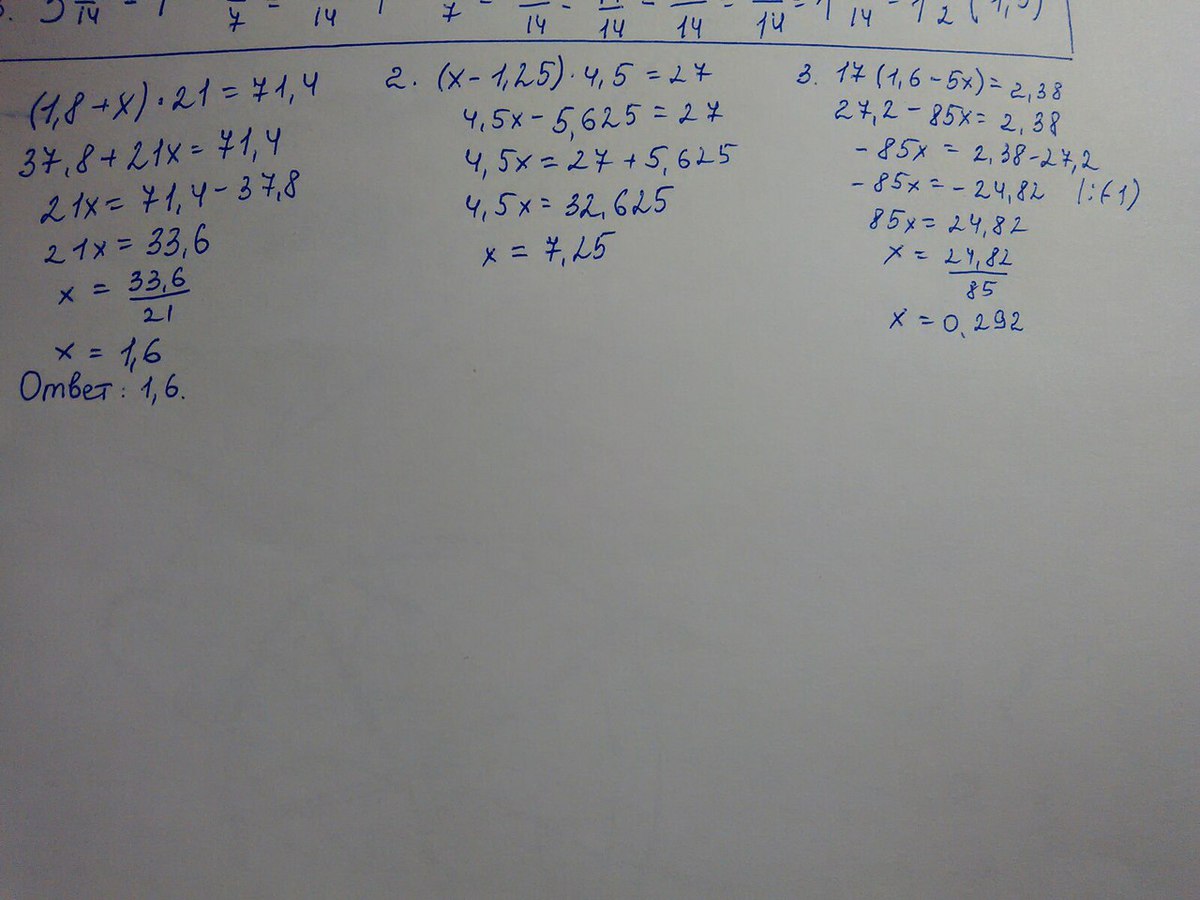 (1,8+x)·21=71,4
37,8+21x=71,4
21x=71,4-37,8
21x=33,6
x = 33,6/21
x = 1,6
Ответ: 1,6.
2. (x-1,25)·4,5=27
4,5x-5,625=27
4,5x=27+5,625
4,5x=32,625
x = 7,25
3. 17(1,6-5x)=2,38
27,2-85x=2,38
-85x = 2,38-27,2
-85x=-24,82 |:(-1)
85x=24,82
x = 24,82/85
x = 0,292